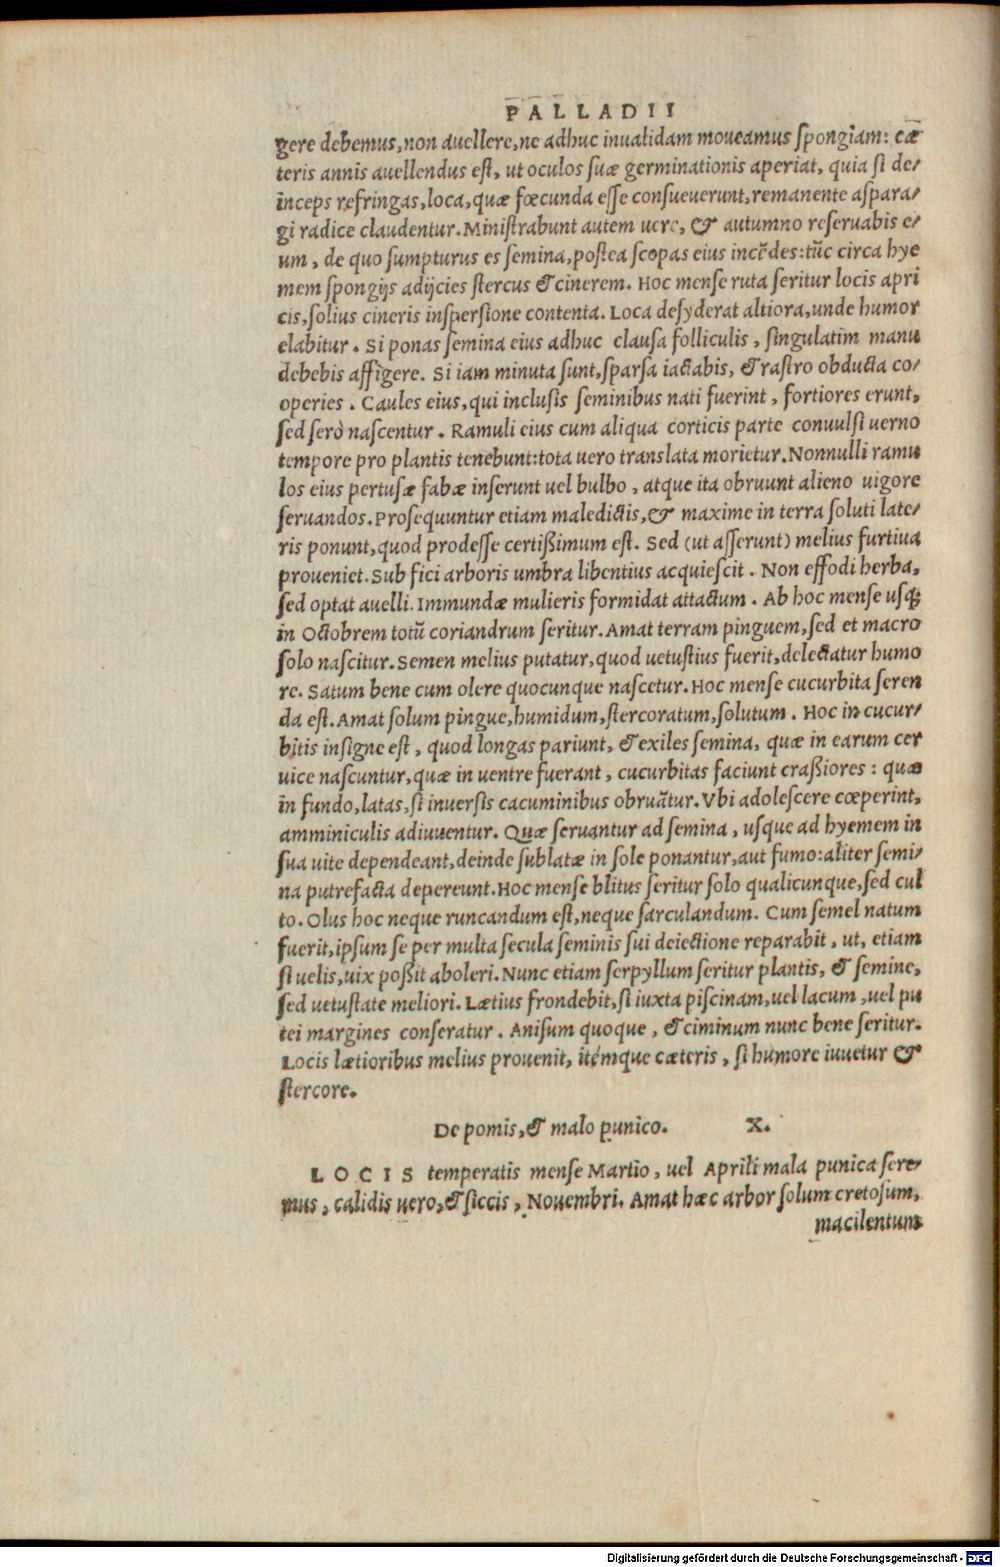 PALLADII
gere debemus, non auellere, ne adhuc inualidam moueamus spongiam: cæ
teris annis auellendus est, ut oculos suæ germinationis aperiat, quia si de/
inceps refringas, loca, quæ fœcunda esse consueuerunt, remanente aspara/
gi radice claudentur. Ministrabunt autem uere, & autumno reseruabis e/
um, de quo sumpturus es semina, postea scopas eius incēdes: tūc circa hye
mem spongijs adijcies stercus & cinerem. Hoc mense ruta seritur locis apri
cis, solius cineris inspersione contenta. Loca desyderat altiora, unde humor
elabitur. Si ponas semina eius adhuc clausa folliculis, singulatim manu
debebis affigere. Si iam minuta sunt, sparsa iactabis, & rastro obducta co/
operies. Caules eius, qui inclusis seminibus nati fuerint, fortiores erunt,
sed serò nascentur. Ramuli eius cum aliqua corticis parte conuulsi uerno
tempore pro plantis tenebunt: tota uero translata morietur. Nonnulli ramu
los eius pertusæ fabæ inserunt uel bulbo, atque ita obruunt alieno uigore
seruandos. Prosequuntur etiam maledictis, & maxime in terra soluti late/
ris ponunt, quod prodesse certißimum est. Sed (ut asserunt) melius furtiua
proueniet. Sub fici arboris umbra libentius acquiescit. Non effodi herba,
sed optat auelli. Immundæ mulieris formidat attactum. Ab hoc mense usq;
in Octobrem totū coriandrum seritur. Amat terram pinguem, sed et macro
solo nascitur. Semen melius putatur, quod uetustius fuerit, delectatur humo
re. Satum bene cum olere quocunque nascetur. Hoc mense cucurbita seren
da est. Amat solum pingue, humidum, stercoratum, solutum. Hoc in cucur/
bitis insigne est, quod longas pariunt, & exiles semina, quæ in earum cer
uice nascuntur, quæ in uentre fuerant, cucurbitas faciunt craßiores: quæ
in fundo, latas, si inuersis cacuminibus obruātur. Vbi adolescere cœperint,
amminiculis adiuuentur. Quæ seruantur ad semina, usque ad hyemem in
sua uite dependeant, deinde sublatæ in sole ponantur, aut fumo: aliter semi/
na putrefacta depereunt. Hoc mense blitus seritur solo qualicunque, sed cul
to. Olus hoc neque runcandum est, neque sarculandum. Cum semel natum
fuerit, ipsum se per multa secula seminis sui deiectione reparabit, ut, etiam
si uelis, uix poßit aboleri. Nunc etiam serpyllum seritur plantis, & semine,
sed uetustate meliori. Lætius frondebit, si iuxta piscinam, uel lacum, uel pu
tei margines conseratur. Anisum quoque, & ciminum nunc bene seritur.
Locis lætioribus melius prouenit, itémque cæteris, si humore iuuetur &
stercore.
De pomis, & malo punico. X.
LOCIS temperatis mense Martio, uel Aprili mala punica sere/
mus, calidis uero, & siccis, Nouembri. Amat hæc arbor solum cretosum,
macilentum
Digitalisierung gefördert durch die Deutsche Forschungsgemeinschaft - DFG